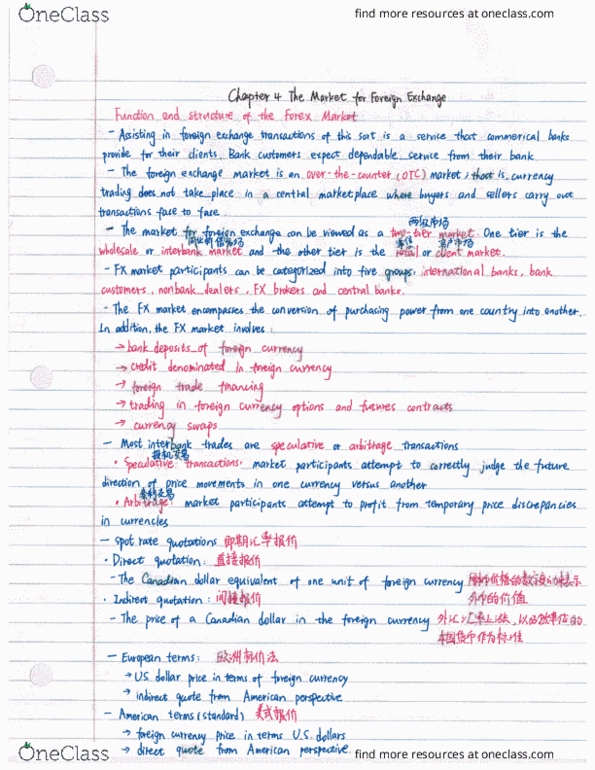 OneClass
find more resources at oneclass.com
Chapter 4 The Market for Foreign Exchange
Function and structure of the Forex Market
- Assisting in foreign exchange transactions of this sort is a service that commerical banks
provide for their clients. Bank customers expect dependable service from their bank
- The foreign exchange market is an over-the-counter (OTC) market, that is, currency
trading does not take place in a central marketplace where buyers and sellers carry out
transactions face to face.
两级市场
- The market for foreign exchange can be viewed as a two-tier market. One tier is the
客户市场
wholesale or interbank market and the other tier is the retail or client market.
- FX market participants can be categorized into five groups: international banks, bank
customers, nonbank dealers, FX brokers and central banks.
- The FX market encompasses the conversion of purchasing power from one country into another.
In addition, the FX market involves:
→ bank deposits of foreign currency
→ credit denominated in foreign currency
→ foreign trade financing
→ trading in foreign currency options and futures contracts
→ currency swaps
- Most interbank trades are speculative or arbitrage transactions
投机交易
· Speculative transactions: market participants attempt to correctly judge the future
direction of price movements in one currency versus another
套利交易
· Arbitrage: market participants attempt to profit from temporary price discrepancies
in currencies
- spot rate quotations 即期汇率报价
· Direct quotation: 直接报价
- The Canadian dollar equivalent of one unit of foreign currency
外币的价值
· Indirect quotation: 间接报价
- The price of a Canadian dollar in the foreign currency
本国货币作为标准
- European terms: 欧洲标价法
→ US. dollar price in terms of foreign currency
→ indirect quote from American perspective
- American terms (standard) 美式报价
→ foreign currency price in terms U.S. dollars
→ direct quote from American perspective
OneClass
find more resources at oneclass.com